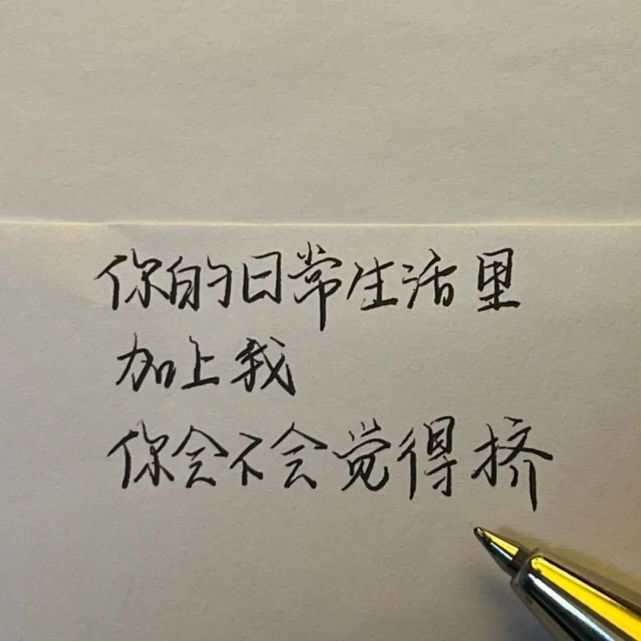 你的日常生活里
加上我
你会不会觉得挤